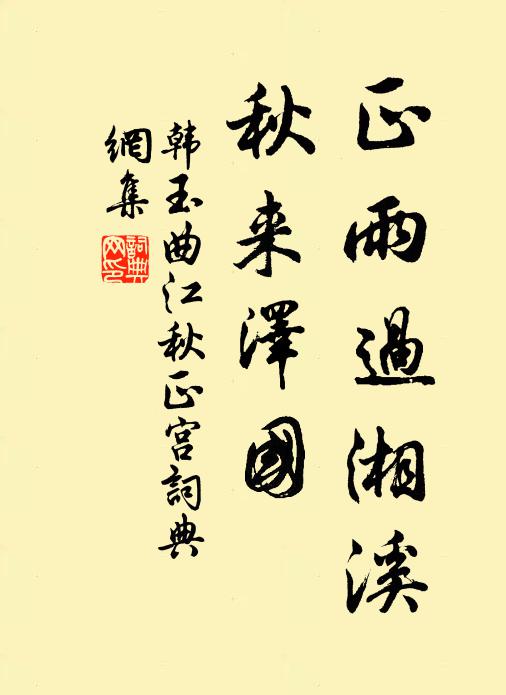 正雨過湘溪
秋来澤國
韩玉曲江秋正宫詞典
網集
詞典
网印